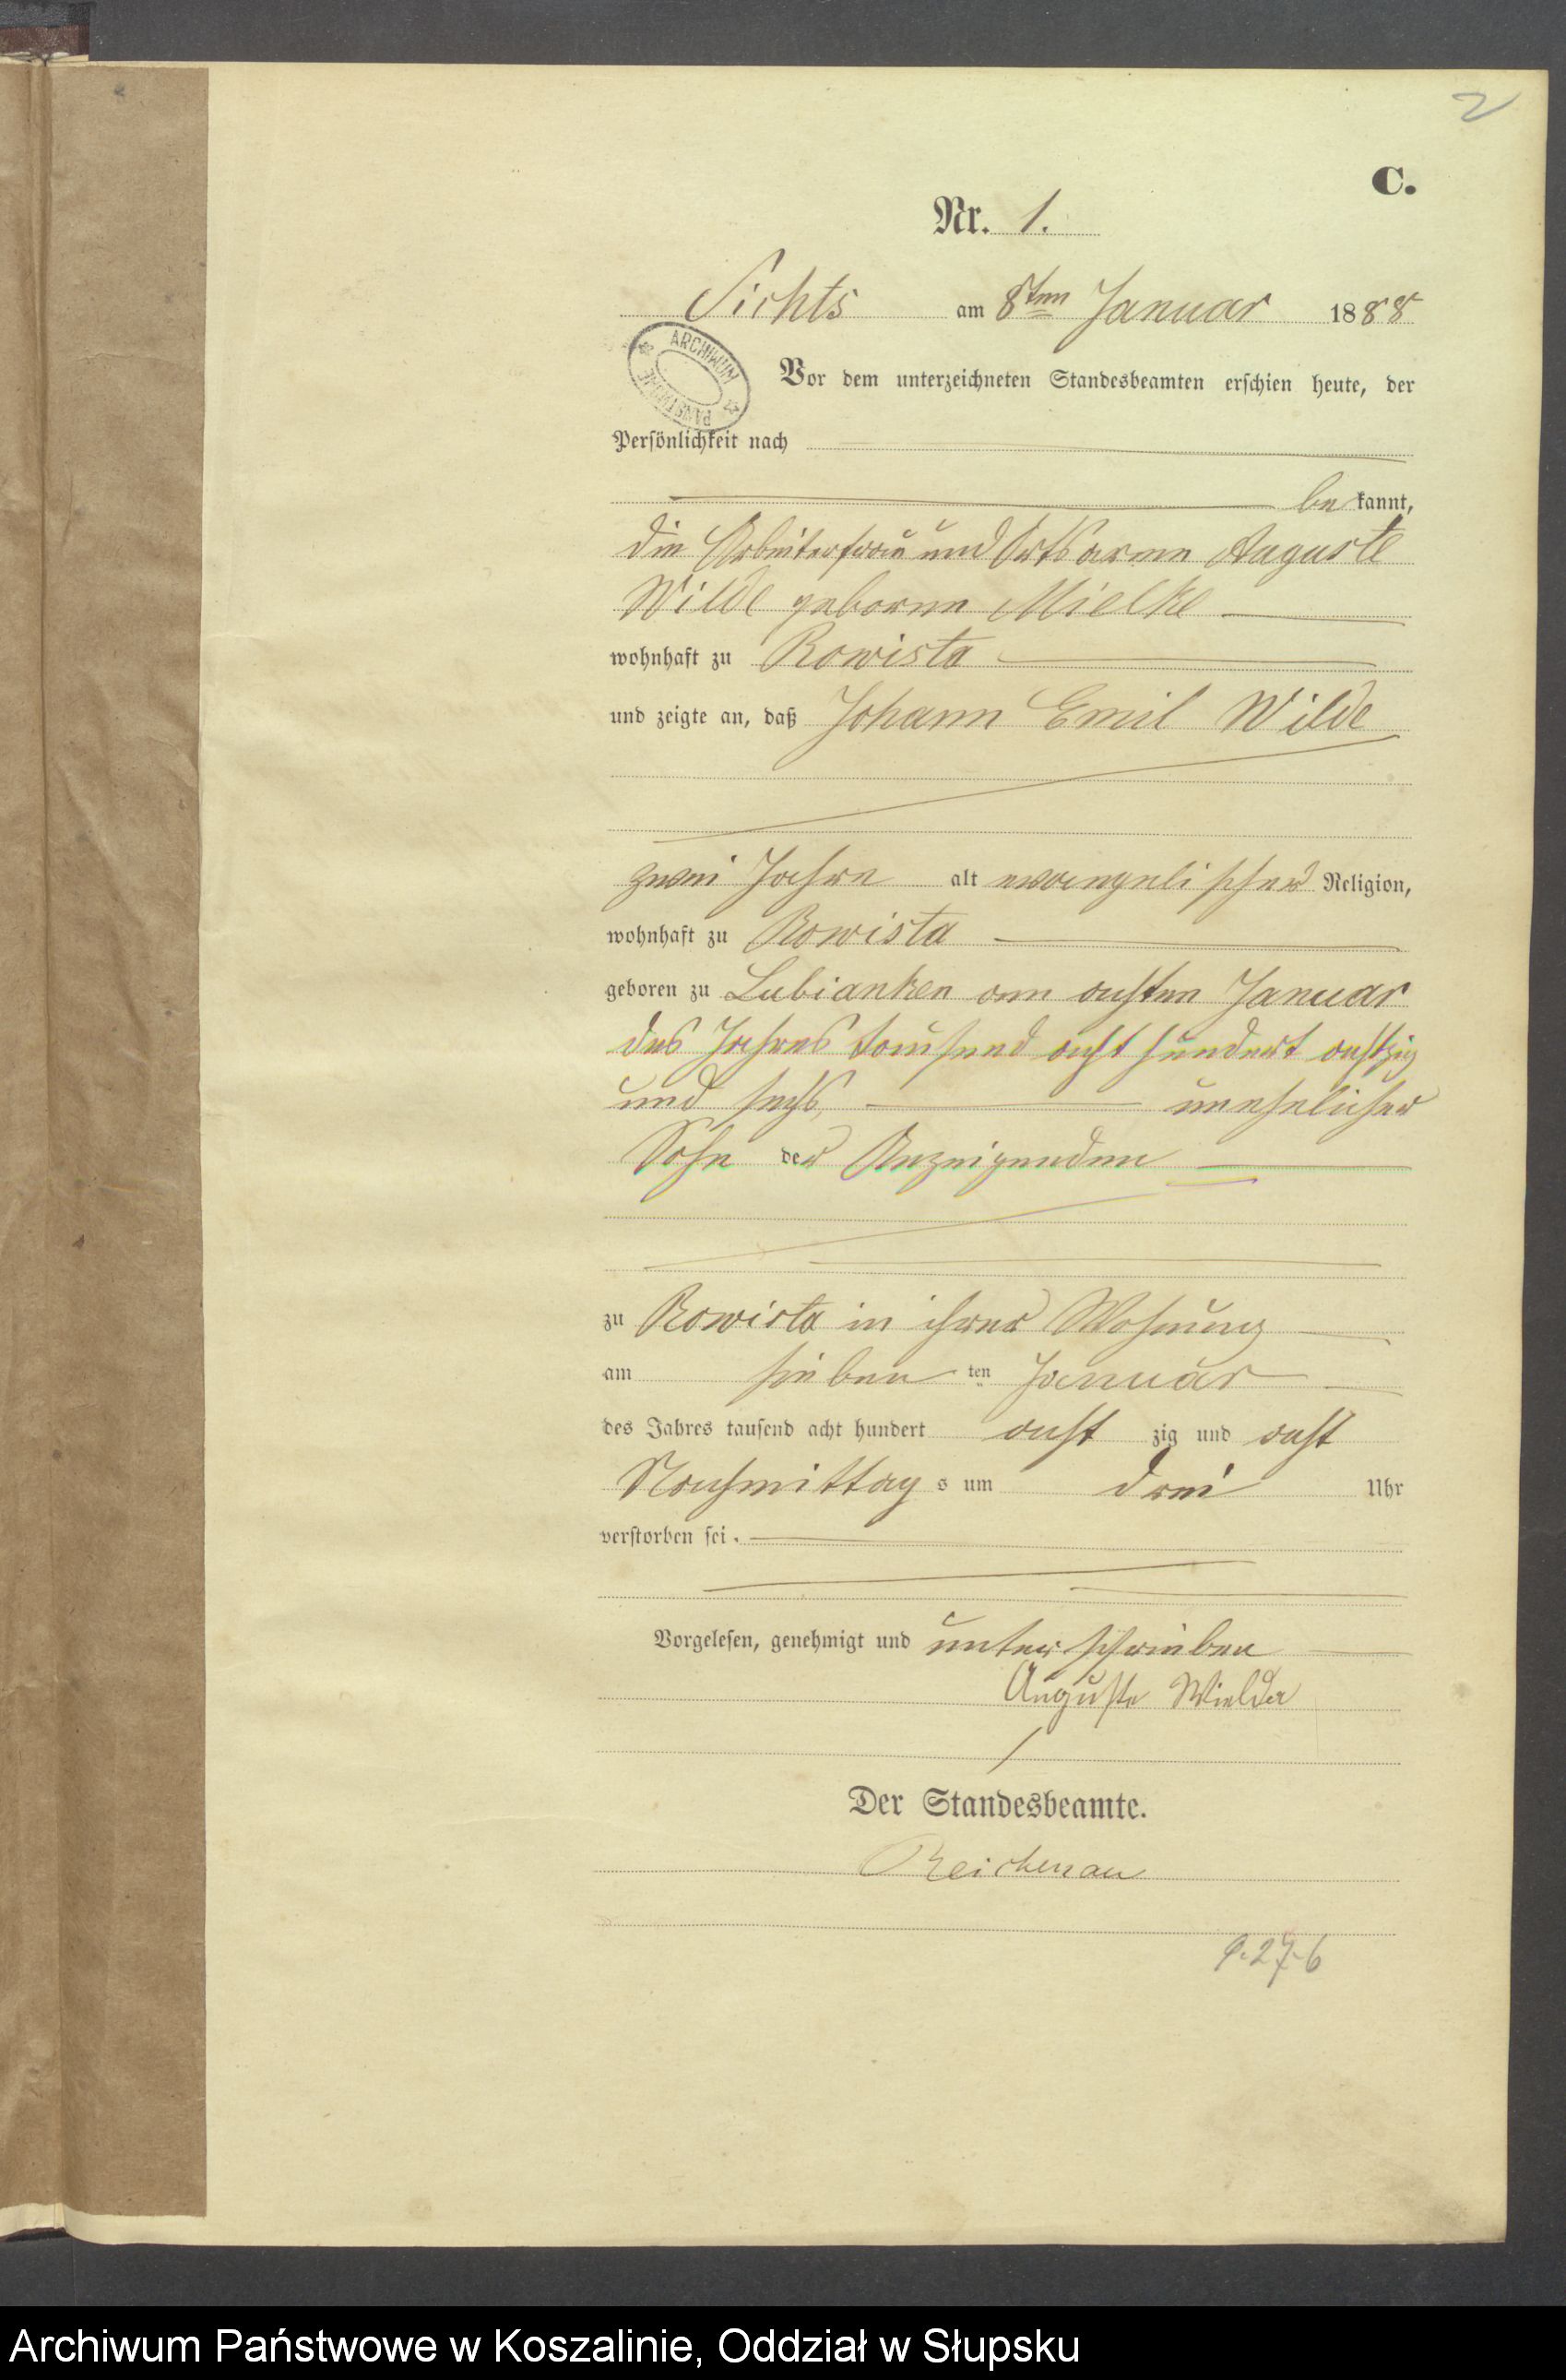 2
C.
Nr. 1.
Sichts am 8ten Januar 1888
ARCHIWUM PAŃSTWOWE
Vor dem unterzeichneten Standesbeamten erschien heute, der
Persönlichkeit nach
be kannt,
die Arbeiterfrau und Ortsarme Auguste
Wilde geborne Mielke
wohnhaft zu Rowista
und zeigte an, daß Johann Emil Wilde
zwei Jahre alt evangelischer Religion,
wohnhaft zu Rowista
geboren zu Lubianken am achten Januar
des Jahres tausend acht hundert achtzig
und sechs, unehelicher
Sohn der Anzeigenden
zu Rowista in ihrer Wohnung
am sieben ten Januar
des Jahres tausend acht hundert acht zig und acht
Nachmittag s um drei Uhr
verstorben sei.
Vorgelesen, genehmigt und unterschrieben
Auguste Wielde
Der Standesbeamte.
Reichenau
Archiwum Państwowe w Koszalinie, Oddział w Słupsku